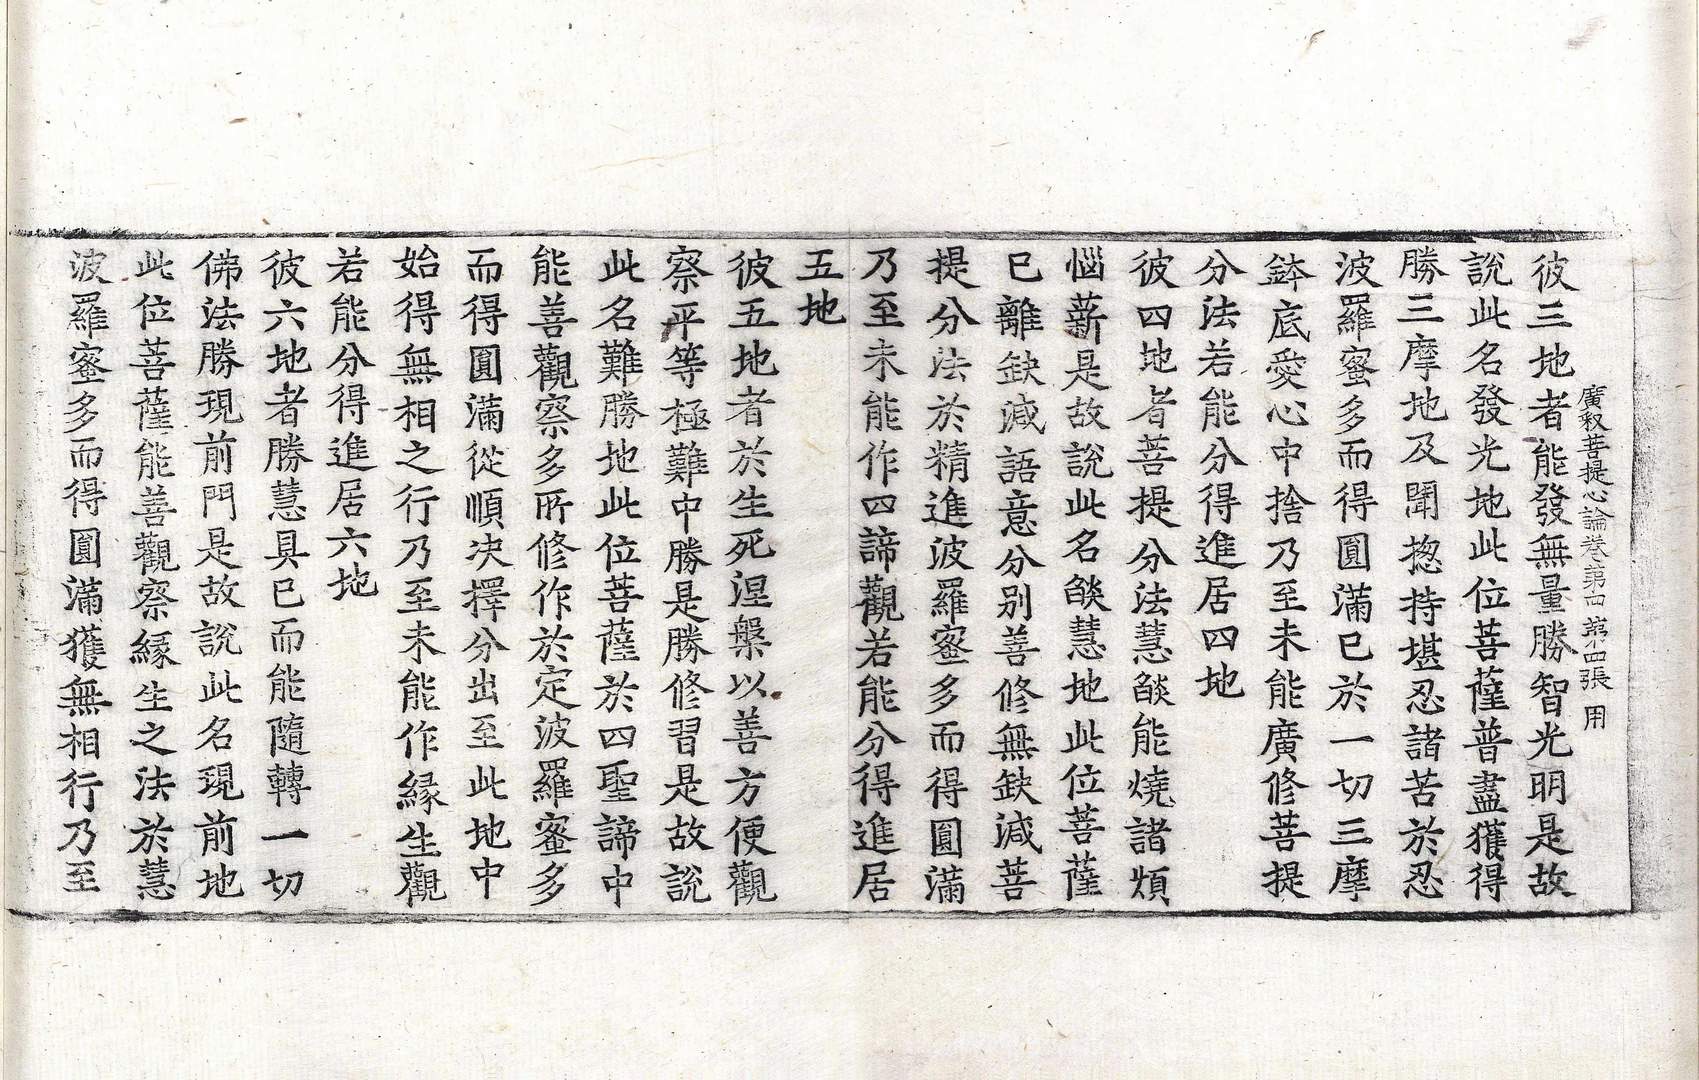 廣釈菩提心論卷第四 第十四張 用
彼三地者能發無量勝智光明是故
說此名發光地此位菩薩普盡獲得
勝三摩地及聞揔持堪忍諸苦於忍
波羅蜜多而得圓滿已於一切三摩
鉢底愛心中捨乃至未能廣修菩提
分法若能分得進居四地
彼四地者菩提分法慧燄能燒諸煩
惱薪是故說此名燄慧地此位菩薩
已離缺減語意分别善修無缺減菩
提分法於精進波羅蜜多而得圓滿
乃至未能作四諦觀若能分得進居
五地
彼五地者於生死涅槃以善方便觀
察平等極難中勝是勝修習是故說
此名難勝地此位菩薩於四聖諦中
能善觀察多所修作於定波羅蜜多
而得圓滿從順决擇分出至此地中
始得無相之行乃至未能作緣生觀
若能分得進居六地
彼六地者勝慧具已而能隨轉一切
佛法勝現前門是故說此名現前地
此位菩薩能善觀察緣生之法於慧
波羅蜜多而得圓滿獲無相行乃至